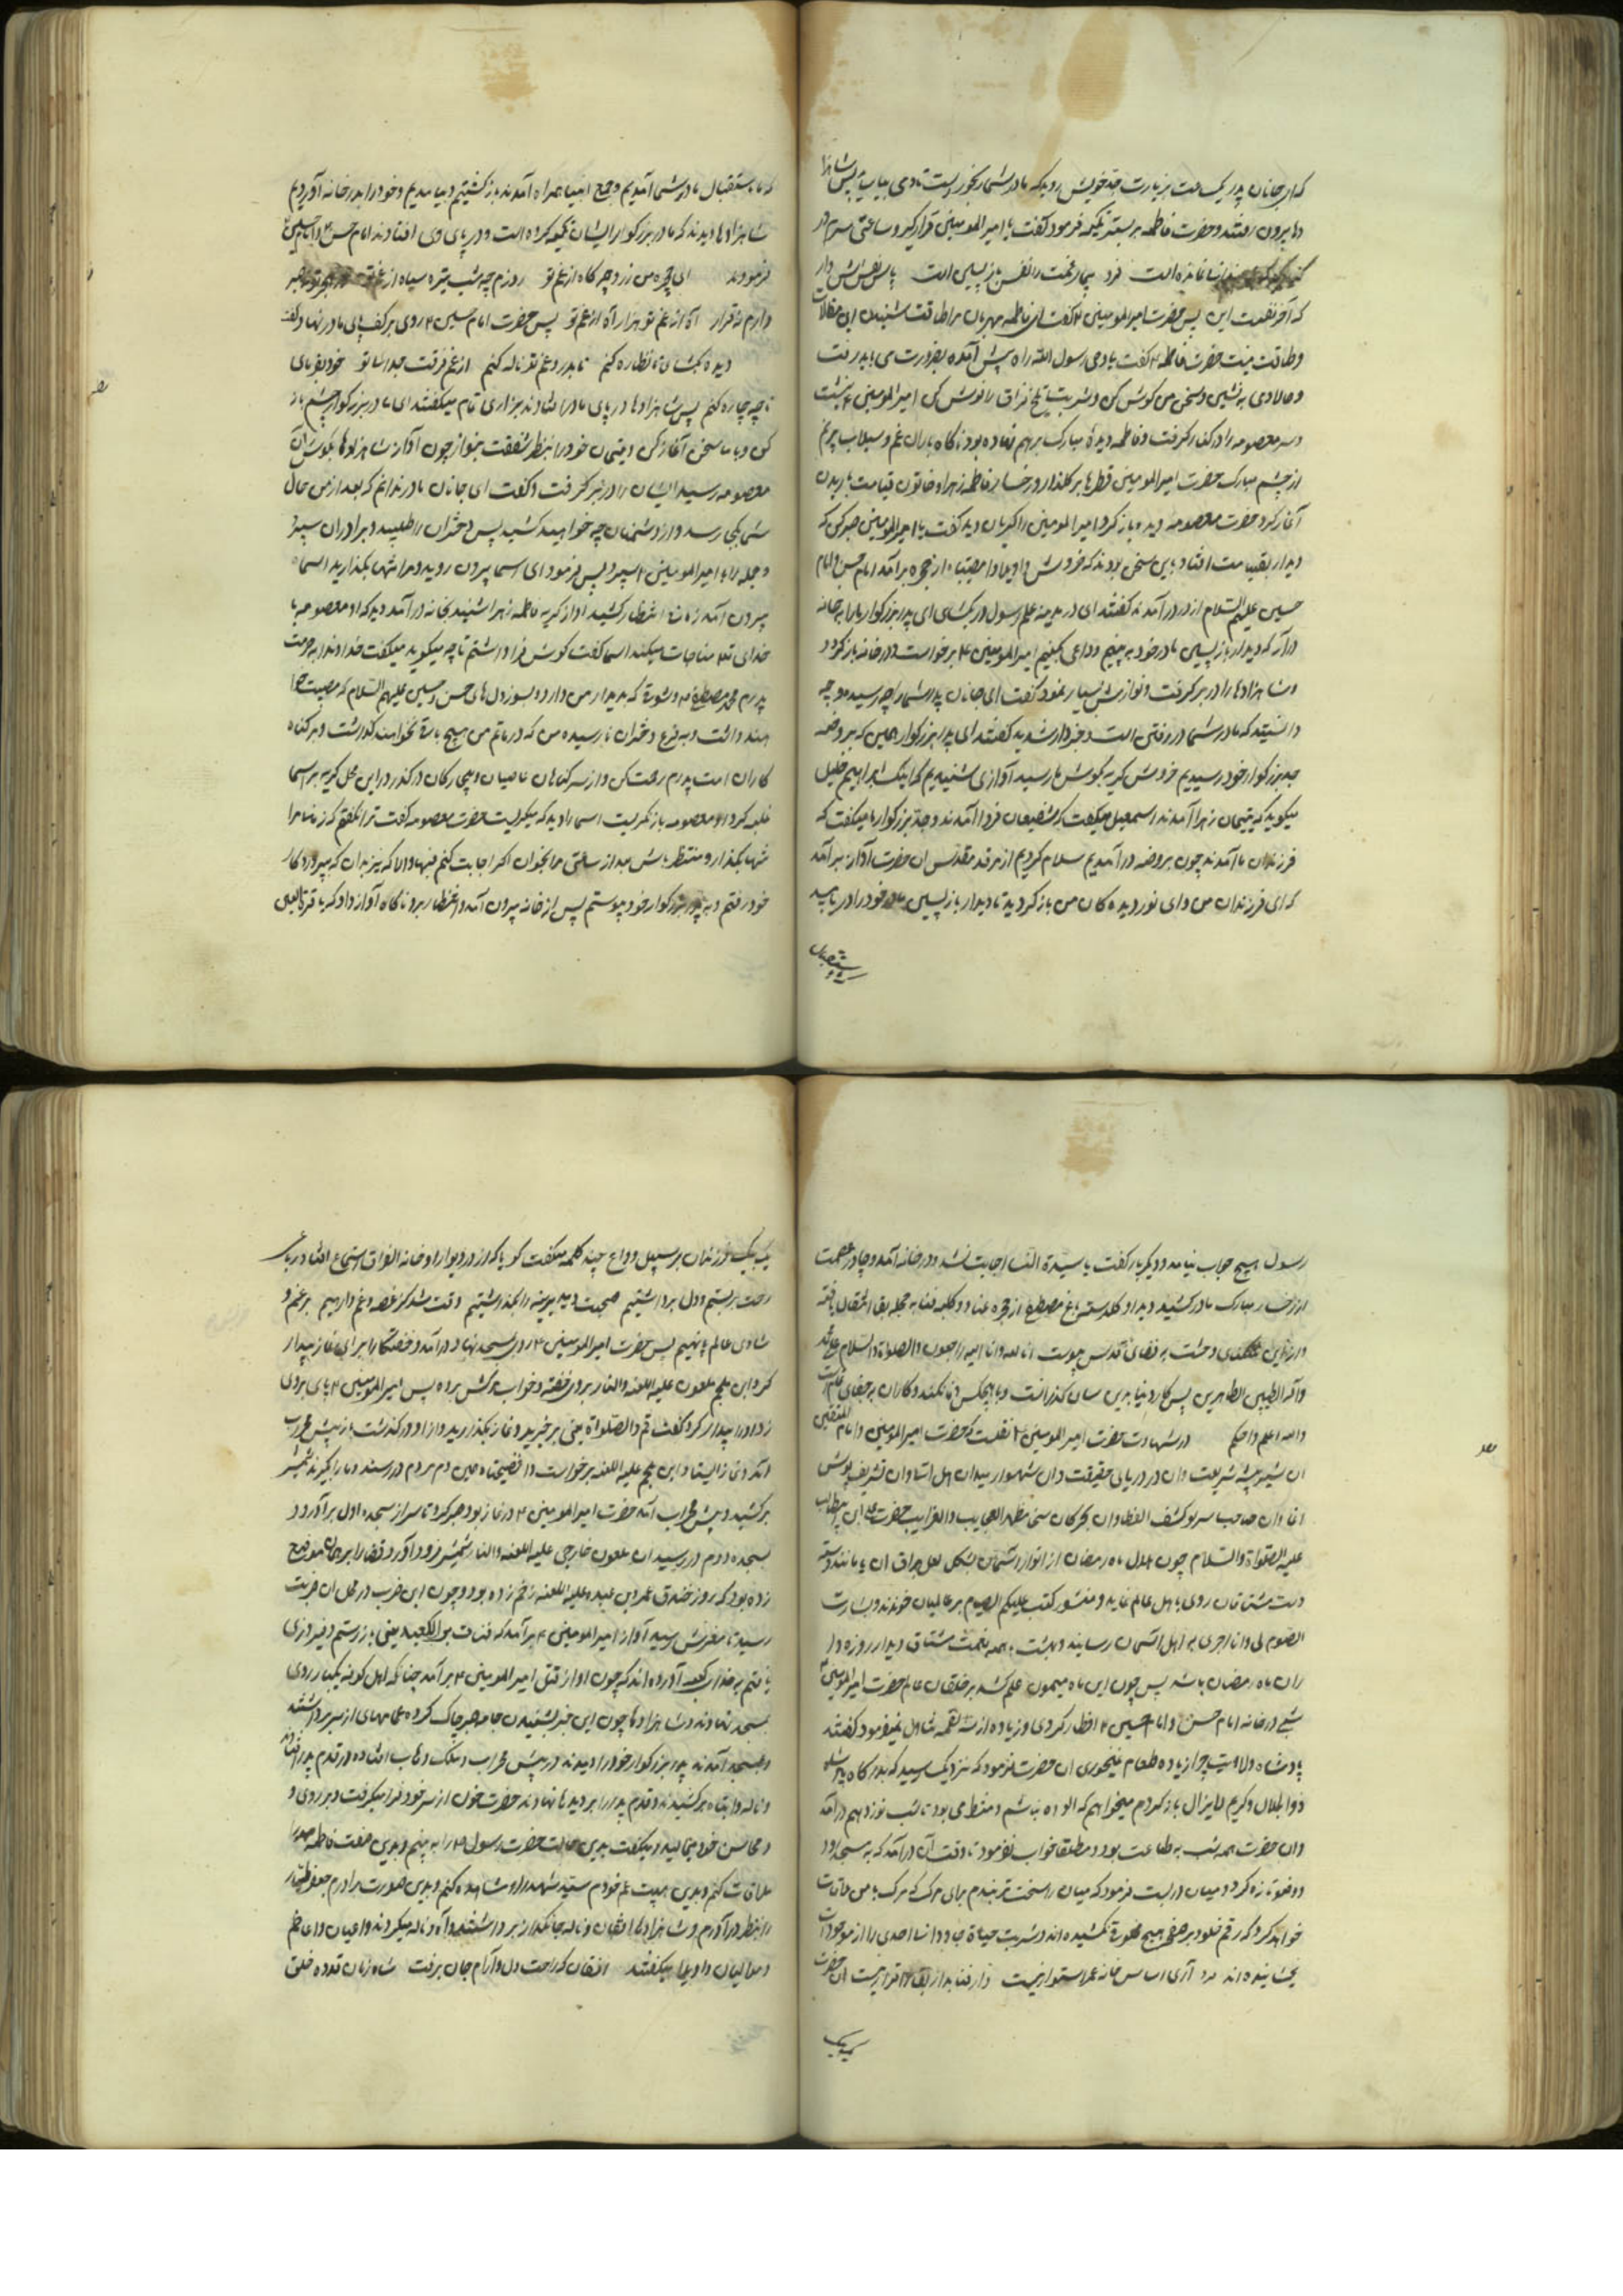 که ای جانان پدر یک ساعت بزیارت جد خویش روید که مادر شما رنجور است تا دمی بیاساید پس شاهزا
دها بیرون رفتند و حضرت فاطمه بر بستر تکیه فرمود گفت یا امیرالمومنین قرار گیر و ساعتی سرم در
کنار نمانده است فرد بیمار غمت را نفس بازپسین است پاس نفسش دار
که آخر نفست این پس حضرت امیرالمومنین گفت ای فاطمه مهربان مرا طاقت شنیدن این مقالات
و طاقت نیست حضرت فاطمه گفت یا وصی رسول الله راه پیش آمده بضرورت می باید رفت
و حالا دمی بنشین و سخن من گوش کن و شربت تلخ فراق را نوش کن امیرالمومنین بنشست
و سر معصومه را در کنار گرفت و فاطمه دیده مبارک برهم نهاده بود ناگاه باران غم و سیلاب
از چشم مبارک حضرت امیرالمومنین قطرها بر گلذار رخسار فاطمه زهرا و خاتون قیامت باریدن
آغاز کرد حضرت معصومه دیده باز کرد امیرالمومنین را گریان دید گفت یا امیرالمومنین صبر کن که
دیدار بقیامت افتاد باین سخن بودند که خروش واویلا وا مصیبتاه از حجره برآمد امام حسن و امام
حسین علیهم السلام از در درآمدند گفتند ای در مدینه علم رسول در بگشای ای پدر بزرگوار ما را بخانه
درآر که دیدار بازپسین مادر خود به بینیم و وداعی بکنیم امیرالمومنین برخواست و در خانه باز کرد
و شاهزادها را در بر گرفت و نوازش بسیار نمود گفت ای جانان پدر شما را چه رسید و چه
دانستید که مادر شما در رفتن است و خبردار شدید گفتند ای پدر بزرگوار همین که بروضه
جد بزرگوار خود رسیدیم خروش گریه بگوش ما رسید آوازی شنیدیم که اینک ابراهیم خلیل
میگوید که یتیمان زهرا آمدند اسمعیل میگفت که شفیعان فردا آمدند و جد بزرگوار ما میگفت که
فرزندان ما آمدند چون بروضه درآمدیم سلام کردیم از مرقد مقدس ان حضرت آواز برآمد
که ای فرزندان من و ای نور دیدهکان من باز گردید تا دیدار بازپسین مادر خود را دریابید
که ما باستقبال مادر شما آمدیم و جمع انبیا همراه آمدند باز گشتیم و بیامدیم و خود را بدر خانه آوردیم
شاهزادها دیدند که مادر بزرگوار ایشان تکیه کرده است و در پای وی افتادند امام حسن و امام حسین
فرمودند ای چهره من زرد چو کاه از غم تو روزم چو شب تیره سیاه از غم تو
دارم نه قرار آه از غم تو هزار آه از غم تو پس حضرت امام حسین روی بر کف پای مادر نهاد و گفت
دیده بگشا تا نظاره کنم تا بدرد و غم تو ناله کنم از غم فرقت جدا تو خود بفرمای
تا چه چاره کنم پس شاهزادها در پای مادر افتادند بزاری تمام میگفتند ای مادر بزرگوار چشم باز
کن و با ما سخن آغاز کن و یتیمان خود را بنظر شفقت بنواز چون آواز شاهزادها بگوش آن
معصومه رسید ایشان را در بر گرفت و گفت ای جانان مادر ندانم که بعد از من حال
شما بکجا رسد و از دشمنان چه خواهید کشید پس دختران را طلبید و برادران سپرد
و جمله را با امیرالمومنین سپرد پس فرمود ای اسما بیرون روید و مرا تنها بگذارید اسما
بیرون آمد انتظار کشید آواز گریه فاطمه زهرا شنید بخانه درآمد دید که او معصومه با
خدای تعالی مناجات میکند اسما گفت گوش فرا داشتم تا چه میگوید میگفت خداوندا به حرمت
پدرم محمد مصطفی که بدیدار من دارد و بسوز دل های حسن و حسین علیهم السلام که مصیبت
و بفزع دختران نارسیده من که در ماتم من هیچ باقی نخواهند گذاشت و بر گناه
کاران امت پدرم رحمت کن و از سر گناهان عاصیان و بیچارکان درگذر در این محل گریه بر اسما
غلبه کرد و معصومه باز نگریست اسما را دید که میگریست حضرت معصومه گفت ترا نگفتم که مرا
تنها بگذار و منتظر باش بعد از ساعتی مرا بخوان اگر اجابت کنم فبها والا که نیز بدان که بپروردکار
خود رفتم و به پدر بزرگوار خود پیوستم پس از خانه بیرون آمد و انتظار برد ناگاه آواز داد که یا قرة العین
رسول هیچ جواب نیامد و دیگر بار گفت یا سیدة النسا اجابت نشد و در خانه آمد و چادر عصمت
از رخسار مبارک مادر کشید دید او گلدسته باغ مصطفی از حجره عنا و کلبه فنا به حجله بقا انتقال یافته
و از این تنگنای وحشت به فضای قدس پیوست انا لله و انا الیه راجعون والصلوة والسلام علی محمد
و آله الطیبین الطاهرین پس کار دنیا بدین سان گذرانست و با هیچکس وفا نکند و کاران به جفای
والله اعلم و احکم در شهادت حضرت امیرالمومنین نقلست که حضرت امیرالمومنین و امام المتقین
ان شیر بیشه شریعت و ان در دریای حقیقت و ان شهسوار میدان هل اتی و ان تشریف پوش
انما و ان صاحب سر لو کشف الغطا و ان بحر کان سخا مظهر العجایب والغرایب حضرت علی ابن ابیطالب
علیه الصلواة والسلام چون هلال ماه رمضان از انوار آسمان بشکل لعل براق ان
دست مشتاقان روی باهل عالم نماید و منشور کتب علیکم الصیام بر عالمیان خوندند و بشارت
الصوم لی و انا اجزی به باهل آسمان رسانید و بهشت با همه نعمت مشتاق دیدار روزه دا
ران ماه رمضان باشد پس چون این ماه میمون علم کشد بر خلقان عالم حضرت امیرالمومنین
شبی در خانه امام حسن و امام حسین افطار کردی و زیاده از سه لقمه تناول نمیفرمود گفتند
پادشاه ولایت چرا زیاده طعام نمیخوری ان حضرت فرمود که نزدیک رسید که بدرگاه پادشاه
ذوالجلال و کریم لایزال باز گردم میخواهم که الوده نباشم و منتظر می بود تا شب نوزدهم درآمد
و ان حضرت همه شب به طاعت بود و مطلقا خواب نفرمود تا وقت آن درآمد که به مسجد رود
و وضو تازه کرد و میان دربست فرمود که میان را سخت تر بندم برای مرگ که مرگ با من ملاقات
خواهد کرد که رقم خلود بر صفحه هیچ مخلوق نکشیده اند و شربت حیاة جاودانا احدی را از موجودات
نچشانیده اند فرد آری اساس خانه عمر استوار نیست دار فنا بدار بقا قرار نیست ان حضرت
یک یک فرزندان بر سبیل وداع چند کلمه میگفت گویا که از در دیوار او خانه الفراق استماع افتاد رباعی
رخت بر بستم و دل برداشتیم صحبت دیرینه را بگذاشتیم وقت شد کز غصه و غم وارهیم بر غم و
شادی عالم پا نهیم پس حضرت امیرالمومنین روی بمسجد نهاد و درآمد و خفتگان را برای نماز بیدار
کرد ابن ملجم ملعون علیه اللعنه والنار بر روی خفته و خواب خوش برده پس امیرالمومنین پای بر وی
زد او را بیدار کرد گفت قم والصلواة یعنی برخیزید و نماز بگذارید و از او درگذشت باز پیش محراب
آمد و نماز ایستاد ابن ملجم علیه اللعنه برخواست و افضیحتاه همین دم مردم در رسند و ما را بگیرند شمشیر
برکشید و پیش محراب آمد حضرت امیرالمومنین در نماز بود صبر کرد تا سر از سجده اول برآورد و
بسجده دوم در رسید ان ملعون خارجی علیه اللعنه والنار شمشیر فرود آورد و قضا را بر همان موضع
زده بود که روز خندق عمر ابن عبدود علیه اللعنه زخم زده بود و چون این ضرب در محل ان ضربت
رسید تا مغزش رسید آواز امیرالمومنین برآمد که فزت برب الکعبه یعنی باز رستم و فیروزی
یافتم به خدای کعبه آورده اند که چون آواز قتل امیرالمومنین برآمد چنانکه اهل کوفه یکبار روی
بمسجد نهادند و شاهزادها چون این خبر بشنیدن جامه صبر چاک کرده عمامهای از سر برداشتند
و بمسجد آمدند پدر بزرگوار خود را دیدند در پیش محراب و افتاده در قدم پدر افتادند
و ناله وا ابتاه برکشیدند و قدم پدر را بر دیدها نهادند حضرت خون از سر خود فرا میگرفت و بر روی و
و محاسن خود میمالید و میگفت بدین حالت حضرت رسول را به بینم و بدین صفت فاطمه زهرا
ملاقات کنم و بدین هیبت عم خودم سید شهدا را مشاهده کنم و بدین صورت برادرم جعفر طیار
را بنظر درآورم و شاهزادها افغان و ناله جانگداز برداشتند و آه و ناله میکردند و اعیان و اعاظم
و موالیان واویلا میگفتند افغان که راحت دل و آرام جان برفت شاه زمان قدوه خلق